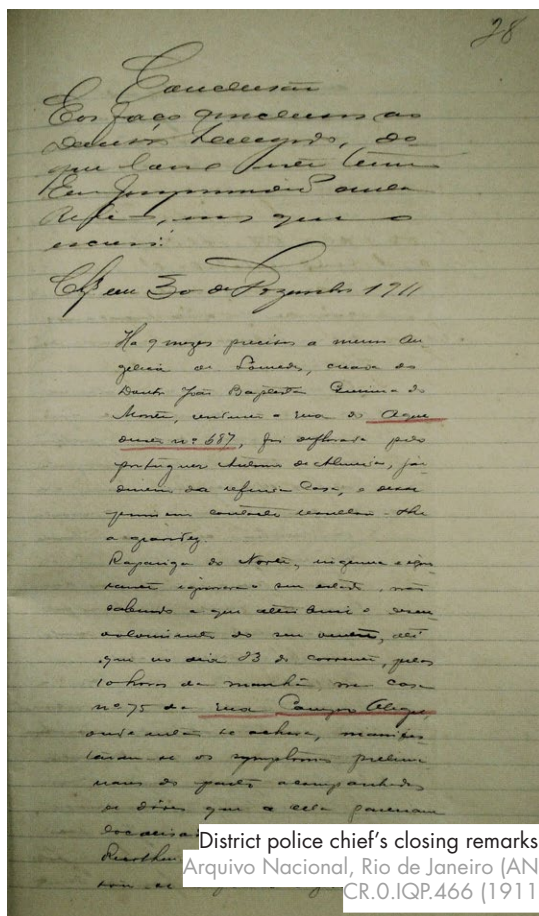 28
Conclusão
Eos faço conclusos ao
Doutor Delegado, do
que lavro este termo
Eu
que o
escrevi.
Cls em 30 de Dezembro 1911
Ha 9 mezes precisos a menor An
gelina de Lourdes, creada do
Doutor João Baptista
Monte, a rua do Aque
ducto nº 687, foi deflorada pelo
portuguez Antonio de Almeida, jar
dineiro da referida Casa, e desse
contacto resultou-lhe
a gravidez.
Rapariga do Norte, ingenua e igno
rante ignorava o seu estado, não
sabendo a que attribuir o desen
volvimento do seu ventre, até
que no dia 23 do corrente, pelas
10 horas da manhã, na casa
nº 75 da rua Campo Alegre,
onde então se achava, manifes
taram-se os symptomas prelimi
nares do parto acompanhados
de dôres que a ella pareciam
District police chief's closing remarks
Arquivo Nacional, Rio de Janeiro (AN
CR.0.IQP.466 (1911